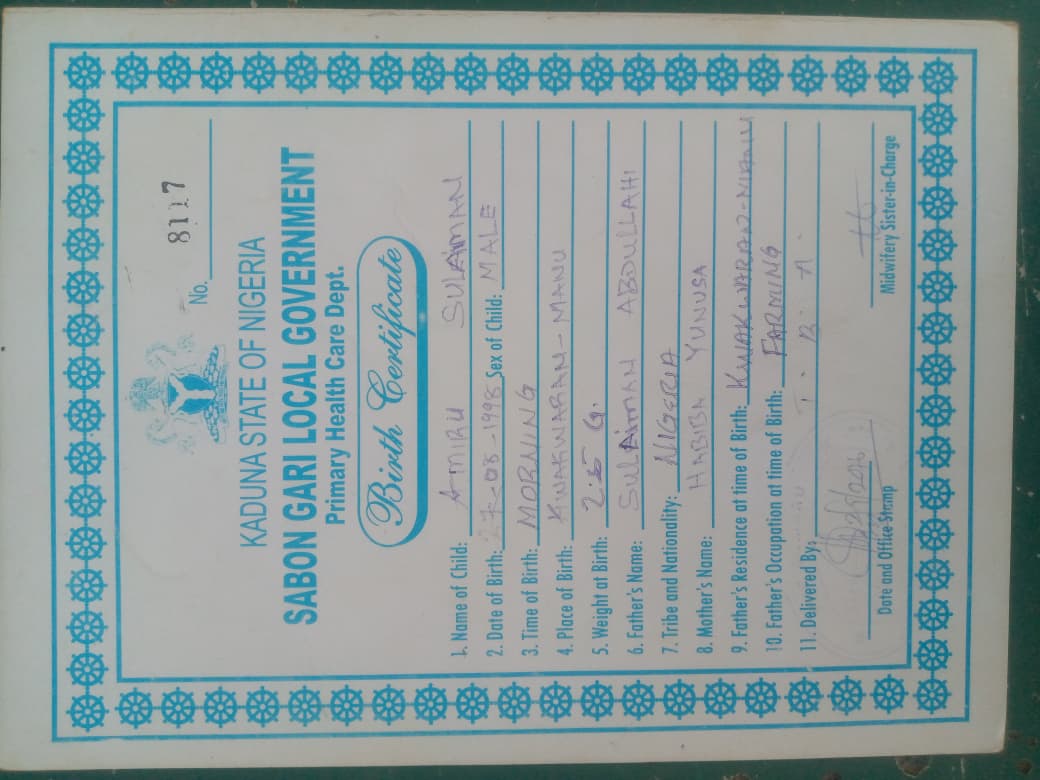 No. 8117
KADUNA STATE OF NIGERIA
SABON GARI LOCAL GOVERNMENT
Primary Health Care Dept.
Birth Certificate
1. Name of Child: AMIRU SULAIMAN
2. Date of Birth: 27-08-1998 Sex of Child: MALE
3. Time of Birth: MORNING
4. Place of Birth: KWAKWARAN-MANU
5. Weight at Birth: 2.5 G.
6. Father's Name: SULAIMAN ABDULLAHI
7. Tribe and Nationality: NIGERIA
8. Mother's Name: HABIBA YUNUSA
9. Father's Residence at time of Birth: KWAKWARAN-MANU
10. Father's Occupation at time of Birth: FARMING
11. Delivered By: T. B. A.
Date and Office Stamp
Midwifery Sister-in-Charge